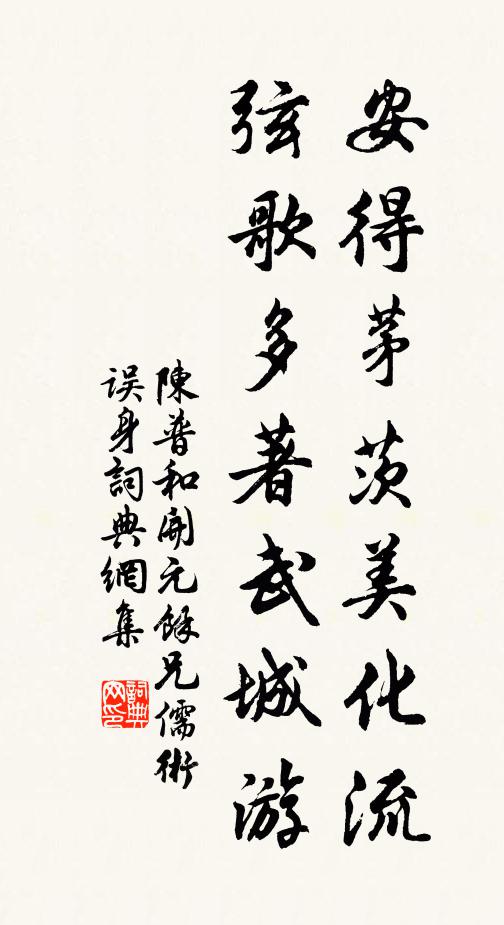 安得茅茨美化流
弦歌多著武城游
陳普和開元餘兄儒術
误身詞典網集
詞典网印